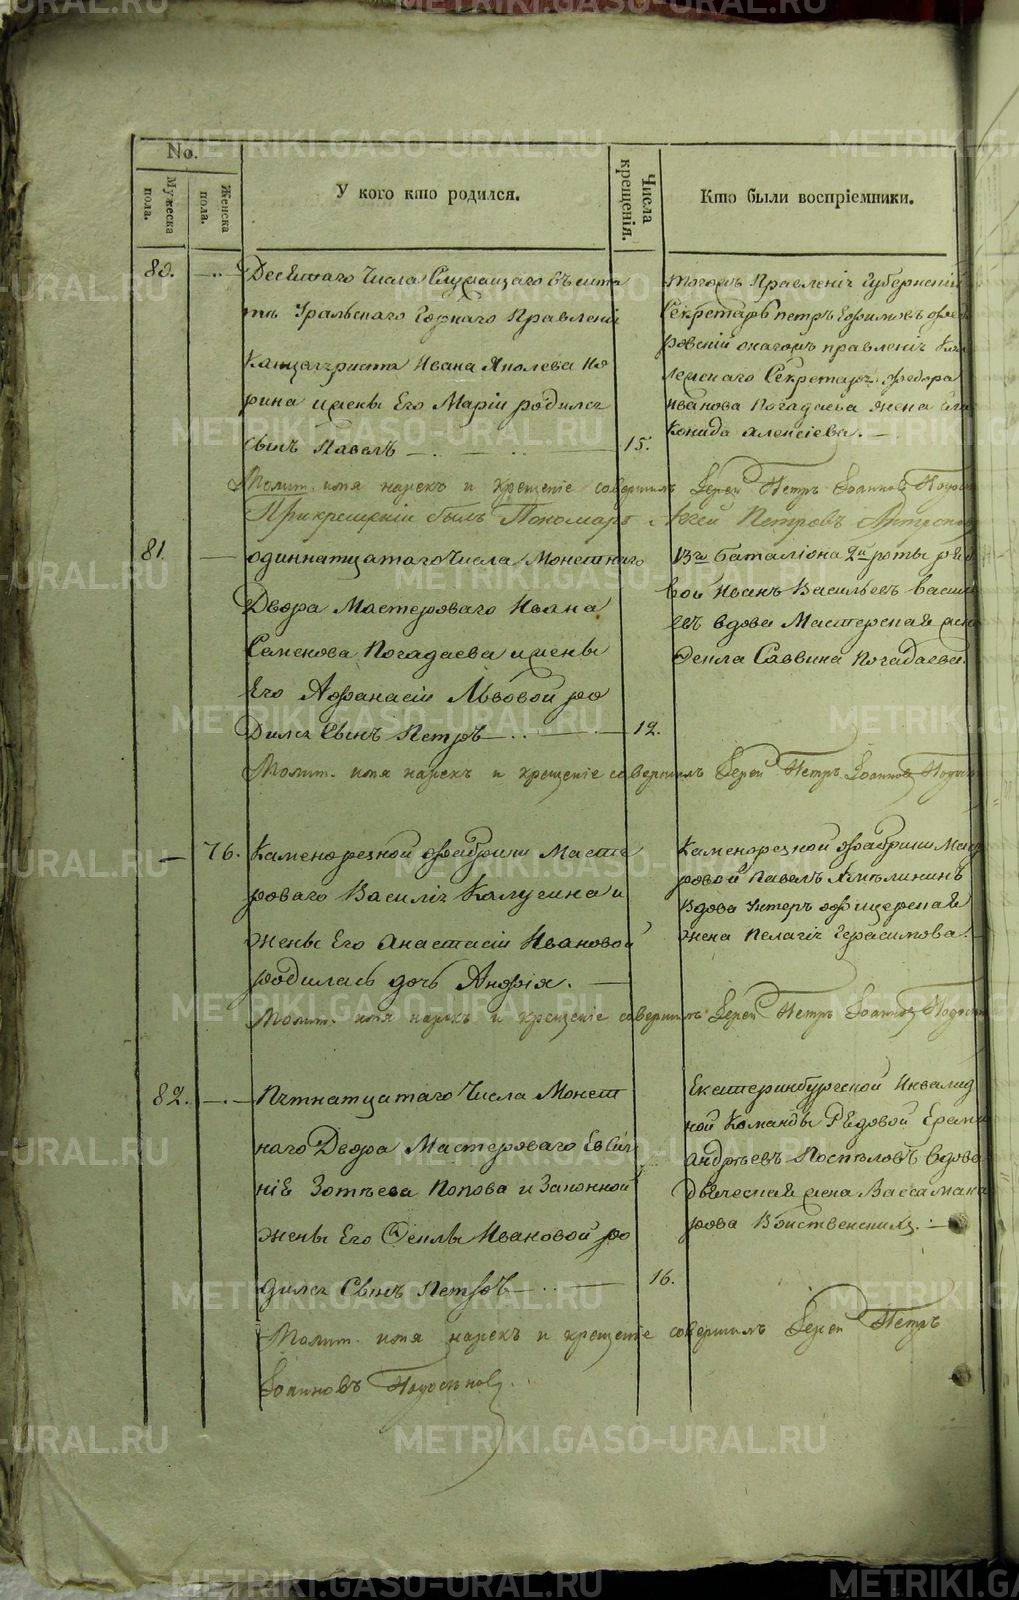 No.
Мужеска пола.
Женска пола.
У кого кто родился.
Числа крещенія.
Кто были воспріемники.
80.
Десятаго числа Служащаго въ шта
тѣ Уральскаго Горнаго Правленія
Канцеляриста Ивана Яковлева
рина и жены Его Маріи родился
сынъ Павелъ
15.
тогожъ Правленія Губернскій
Секретарь Петръ Ефимовъ
ровскій онагожъ правленія
Секретаря Федора
Иванова Погадаева жена
Конида Алексіева.
Молит. имя нарекъ и крещеніе совершилъ Іерей Петръ Іоанновъ
При крещеніи былъ Пономарь Петровъ
81.
Одиннатцатаго Числа Монетнаго
Двора Мастероваго Ивана
Семенова Погадаева и жены
Его Афанасіи Львовой ро
дился Сынъ Петръ
12.
баталіона 2й роты
вой Иванъ Васильевъ
евъ вдова Мастерская жена
Фекла Саввина Погадаева.
Молит. имя нарекъ и крещеніе совершилъ Іерей Петръ Іоанновъ
76.
Каменорезной фабрики Масте
роваго Василія Калугина и
жены Его Анастасіи Ивановой
родилась дочь Анфія.
Каменорезной фабрики Масте
ровой Павелъ
Вдова Унтеръ офицерская
жена Пелагія Герасимова.
Молит. имя нарекъ и крещеніе совершилъ Іерей Петръ Іоанновъ
82.
Пятнатцатаго Числа Монет
наго Двора Мастероваго Евги
нія Зотѣева Попова и Законной
жены Его Феклы Ивановой ро
дился Сынъ Петръ
16.
Екатеринбургской Инвалид
ной Команды Рядовой
Андрѣевъ Поспѣловъ вдова
Дьяческая жена Васса Мака
рова
Молит. имя нарекъ и крещеніе совершилъ Іерей Петръ
Іоанновъ
METRIKI.GASO-URAL.RU